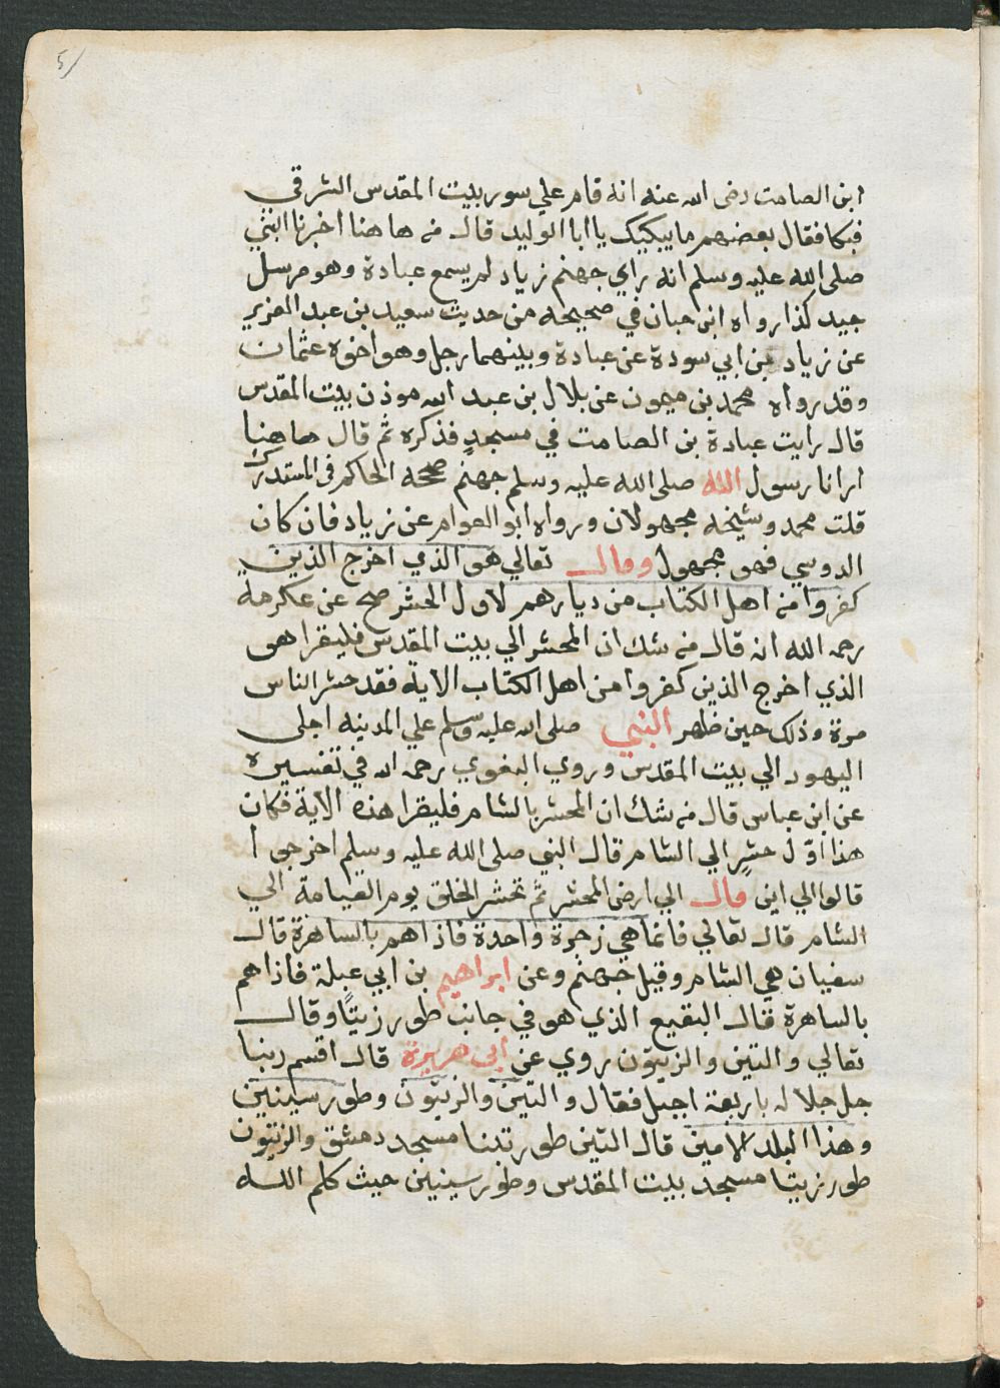 ابن الصامت رضى الله عنه انه قام علي سور بيت المقدس الشرقي
فبكا فقال بعضهم ما يبكيك يا ابا الوليد قال من ها هنا اخبرنا النبي
صلى الله عليه وسلم انه راي جهنم زياد لم يسمع عبادة وهو مرسل
جيد كذا رواه ابن حبان في صحيحه من حديث سعيد بن عبد العزيز
عن زياد بن ابي سودة عن عبادة وبينهما رجل وهو اخوه عثمان
وقد رواه محمد بن ميمون عن بلال بن عبد الله موذن بيت المقدس
قال رايت عبادة بن الصامت في مسجد فذكره ثم قال ها هنا
ارانا رسول الله صلى الله عليه وسلم جهنم صححه الحاكم فى المستدرك
قلت محمد وشيخه مجهولان ورواه ابو العوام عن زياد فان كان
الدوسي فهو مجهول وقال تعالي هو الذي اخرج الذين
كفروا من اهل الكتاب من ديارهم لاول الحشر صح عن عكرمة
رحمه الله انه قال من شك ان المحشر الي بيت المقدس فليقرا هو
الذي اخرج الذين كفروا من اهل الكتاب الاية فقد حشر الناس
مرة وذلك حين ظهر النبي صلى الله عليه وسلم علي المدينه اجلى
اليهود الي بيت المقدس وروي البغوي رحمه الله في تفسيره
عن ابن عباس قال من شك ان المحشر بالشام فليقرا هذه الاية فكان
هذا اوّل حشرٍ الي الشام قال النبي صلى الله عليه وسلم اخرجوا
قالوا الي اين قال الي ارض المحشر ثم تحشر الخلق يوم القيامة الي
الشام قال تعالي فانما هي زجرة واحدة فاذا هم بالساهرة قال
سفيان هي الشام وقيل جهنم وعن ابراهيم بن ابي عبلة فاذا هم
بالساهرة قال البقيع الذي هو في جانب طور زيتًا وقال
تعالي والتين والزيتون روي عن ابى هريرة قال اقسم ربنا
جل جلاله باربعة اجبل فقال والتين والزيتون وطور سينين
وهذا البلد الامين قال التين طور تينا مسجد دمشق والزيتون
طور زيتا مسجد بيت المقدس وطور سينين حيث كلم الله